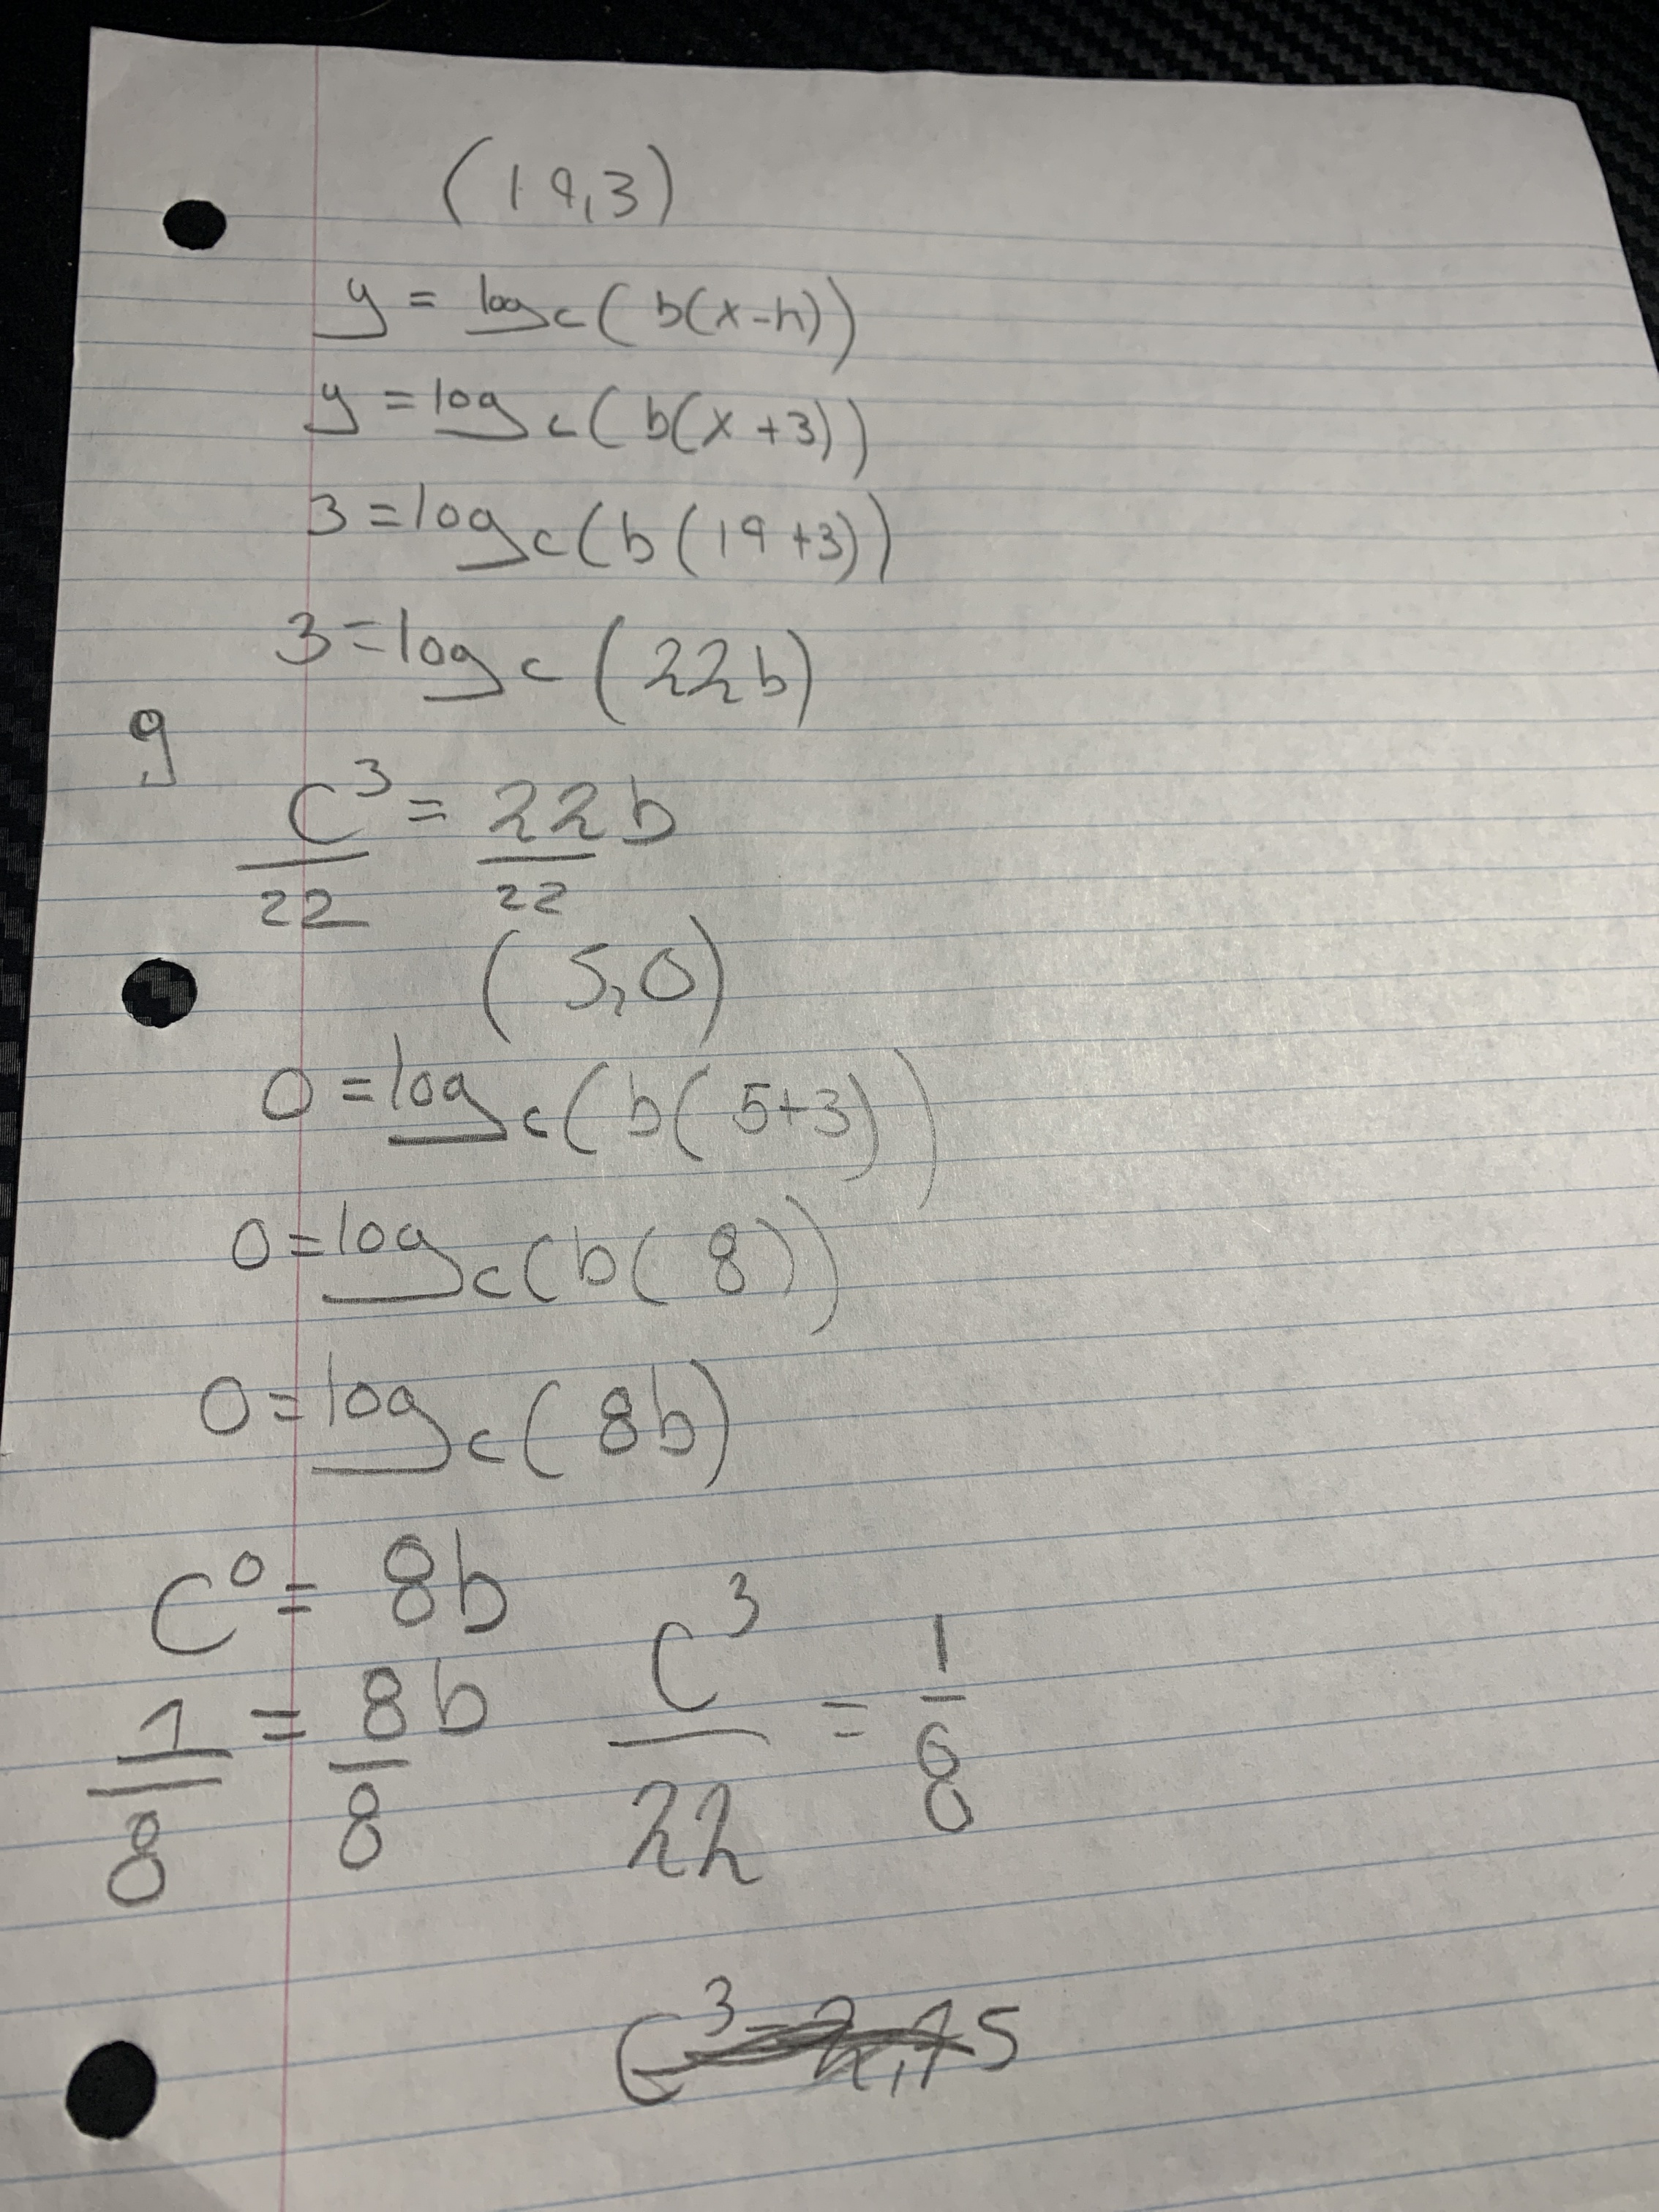 (19,3)
y = log c ( b(x-h))
y = log c ( b(x +3))
3 = log c ( b ( 19 +3))
3 = log c ( 22b)
9
C³ = 22b
22 22
( 5,0)
0 = log c ( b( 5+3))
0 = log c ( b( 8))
0 = log c ( 8b)
C⁰ = 8b
1 = 8b
8 8
C³ = 1
22 8